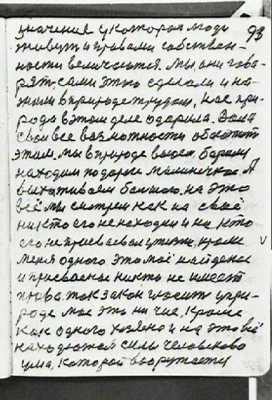 93
значения у которая люди
живут и правами собствен-
ности величаются. Мы они гово-
рят, сами это сделали и на-
жили в природе трудом, нас при-
рода в этом деле одарила. Дала
свои все возможности
этим. Мы в природе
находим по дороге малинька. А
большою. на это
всё мы смотрим как на своё
никто его не находил и на кто
его не присваевал у жизни, кроме
меня одного это моё найденое
и присвоеное никто не имеет
права. так закон гласит у при-
роде мое это ни чие, кроме
как одного хозяина и на это всё
находюжой силы человеково
ума, которой вооружается